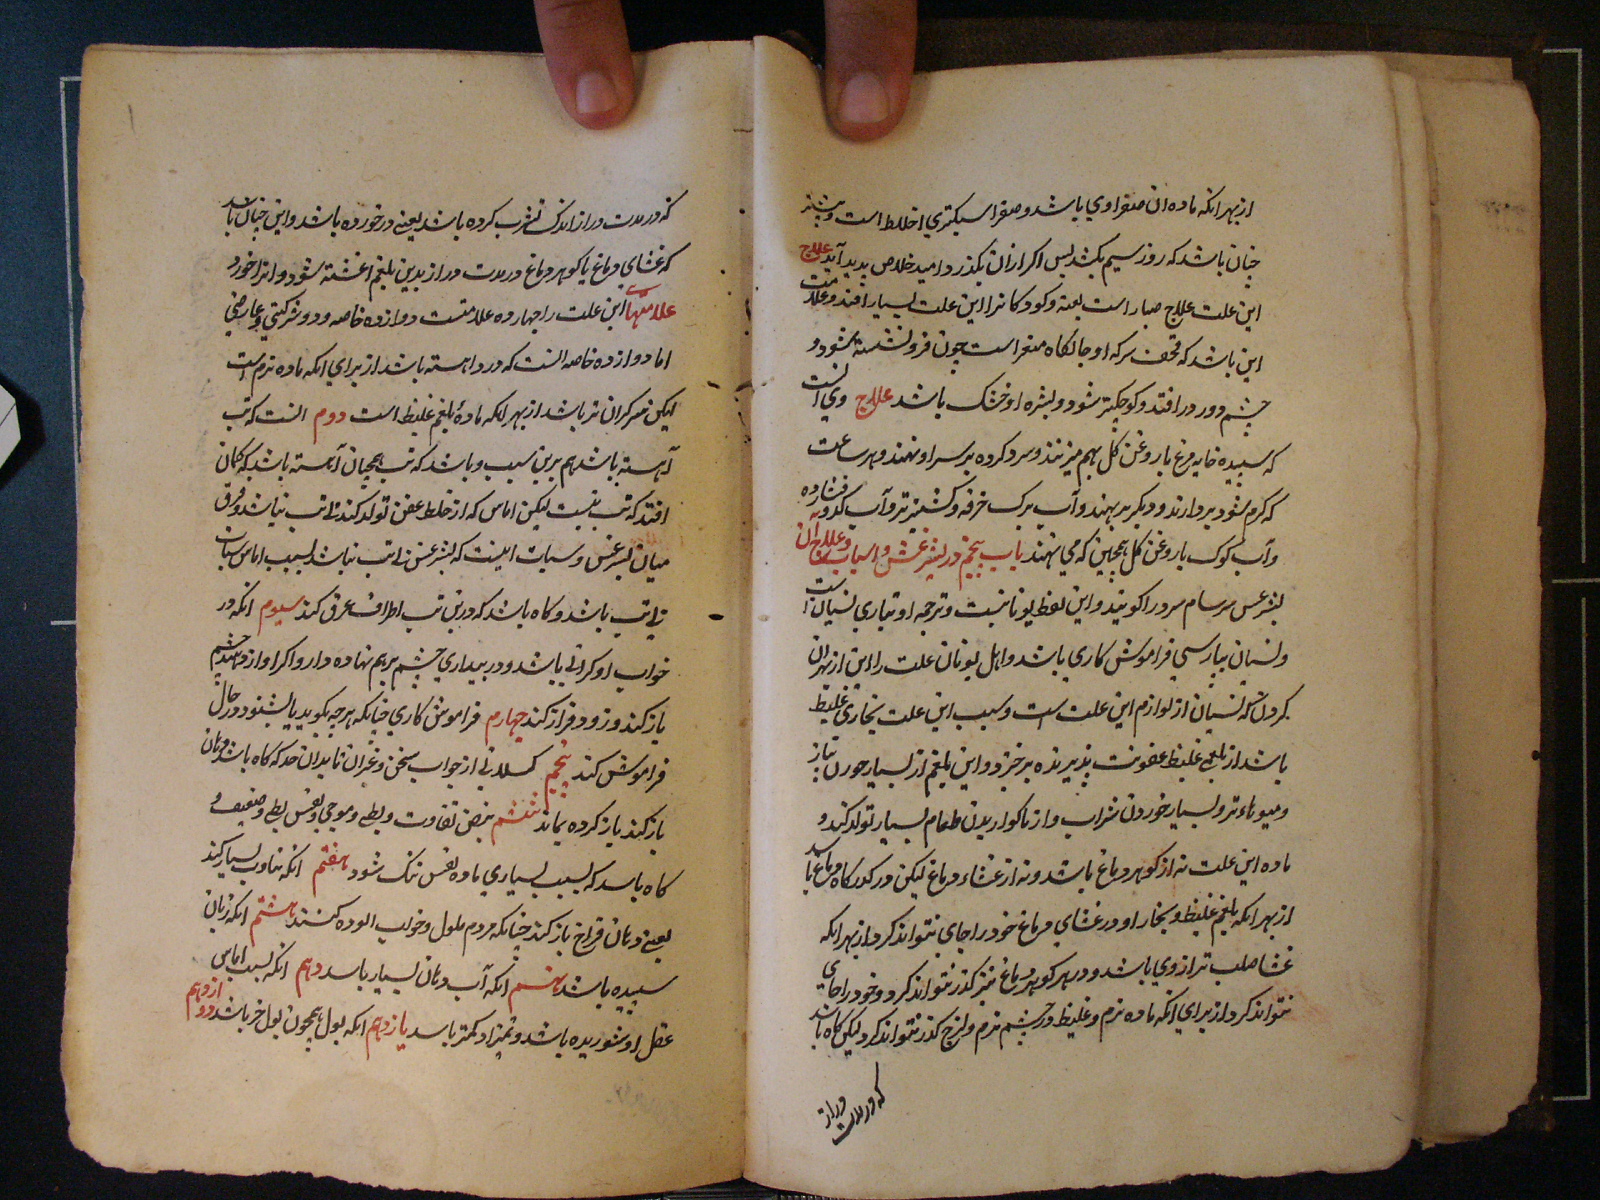 از بهر انکه ماده ان صفراوي باشد و صفرا سبکتري اخلاط است و بیشتر
چنان باشد که روز سیم بکشد پس اکر ازان بکذرد امید خلاص پدید آید علاج
این علت علاج صبار است بعینه و کودکانرا این علت بسیار افتد و علامت
این باشد که قحف سر که او جایکاه مغز است چون فرو نشسته شود و
چشم دور در افتد و کوچکتر شود و بشره او خشک باشد علاج وي انست
که سپیده خایه مرغ با روغن کل بهم میزنند و سرد کرده بر سر او نهند و هر ساعت
که کرم شود بردارند و دیکر بر نهند و آب برک خرفه و کشنیز تر و آب کدوي فشارده
و آب کوک با روغن کل همچنین که مي نهند باب پنجم در لیثرغس و اسباب و علاج ان
لیثرغس سرسام سرد را کویند و این لفظ یونانیست و ترجمه او بتازي نسیان است
و نسیان بپارسي فراموش کاري باشد و اهل یونان علت را این از بهران
کردن که نسیان از لوازم این علت است و سبب این علت بخاري غلیظ
باشد از بلغمي غلیظ عفونت پذیرنده برخیزد و این بلغم از بسیار خوردن پیاز
و میوهاء تر و بسیار خوردن شراب و از ناکواریدن طعام بسیار تولد کند و
ماده این علت نه از کوهر دماغ باشد و نه از غشاء دماغ لیکن در کذرکاه دماغ باشد
از بهر انکه بلغم غلیظ و بخار او در غشاي دماغ خود را جاي نتواند کرد از بهر انکه
غشا صلب تر از وي باشد و در هر کوهر دماغ نیز کذر نتواند کرد و خود را جاي
نتواند کرد از براي انکه ماده نرم و غلیظ در جسم نرم و لزج کذر نتواند کرد لیکن کاه باشد
که در مدت دراز
که در مدت دراز اندک تشرب کرده باشد یعني در خورده باشد و این چنان باشد
که غشاي دماغ یا کوهر دماغ در مدت دراز بدین بلغم اغشته شود و انرا خورد
علامتهاي این علت را چهارده علامتست دوازده خاصه و دو شرکتي و عارضي
اما دوازده خاصه انست که درد اهسته باشد از براي انکه ماده نرم است
لیکن سر کران تر باشد از بهر انکه مادۀ بلغم غلیظ است دوم انست که تب
آهسته باشد هم برین سبب و باشد که تب همچنان آهسته باشد که کمان
افتد که تب نیست لیکن اماس که از خلط عفن تولد کند بي تب نباشد و فرق
میان لیثرغس و سبات اینست که لیثرغس بي تب نباشد بسبب اماس و سبات
بي تب باشد و کاه باشد که درین تب اطراف عرق کند سیوم انکه در
خواب او کراني باشد و در بیداري چشم بر هم نهاده دارد و اکر اواز دهند چشم
باز کند و زود فراز کند چهارم فراموش کاري چنانکه هرچه بکوید یا بشنود در حال
فراموش کند پنجم کسلاني از جواب سخن و غیران تا بدان حد که کاه باشد دهان
باز کند باز کرده بماند ششم نبض تفاوت و بطي و موجي و نفس بطي و ضعیف و
کاه باشد که بسبب بسیاري ماده نفس تنک شود هفتم انکه تثاوب بسیار کند
یعني دهان فراخ باز کند چنانکه مردم ملول و خواب الوده کنند هشتم انکه زبان
سپیده باشد نهم انکه آب دهان بسیار باشد دهم انکه بسبب اماس
عقل او شوریده باشد و تمیز او کمتر باشد یازدهم انکه بول همچون بول خر باشد دوازدهم